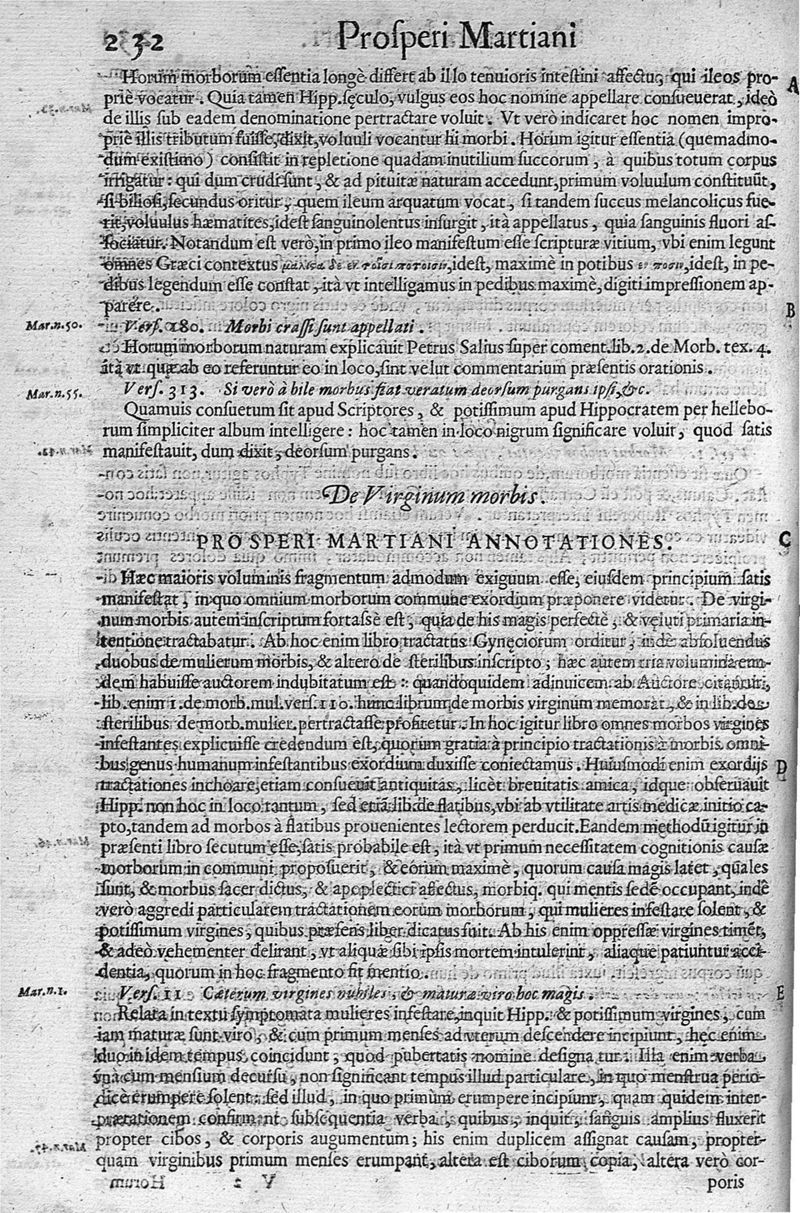 232 Prosperi Martiani
Horum morborum essentia longè differt ab illo tenuioris intestini affectu, qui ileos pro-
A
priè vocatur. Quia tamen Hipp. seculo, vulgus eos hoc nomine appellare consueuerat, ideò
de illis sub eadem denominatione pertractare voluit. Vt verò indicaret hoc nomen impro-
priè illis tributum fuisse, dixit, voluuli vocantur hi morbi. Horum igitur essentia (quemadmo-
dum existimo) consistit in repletione quadam inutilium succorum, à quibus totum corpus
irrigatur: qui dum crudi sunt, & ad pituitæ naturam accedunt, primum voluulum constituūt,
si biliosi, secundus oritur, quem ileum arquatum vocat, si tandem succus melancolicus fue-
rit, voluulus hæmatites, idest sanguinolentus insurgit, ità appellatus, quia sanguinis fluori as-
sociatur. Notandum est verò, in primo ileo manifestum esse scripturæ vitium, vbi enim legunt
omnes Græci contextus μάλιστα δὲ ἐν τοῖσι ποτοῖσιν, idest, maximè in potibus ἐν ποσὶν, idest, in pe-
dibus legendum esse constat, ità vt intelligamus in pedibus maximè, digiti impressionem ap-
parere.
B
Mar.n.50. Vers. 280. Morbi crassi sunt appellati.
Horum morborum naturam explicauit Petrus Salius super coment. lib. 2. de Morb. tex. 4.
ità vt quæ ab eo referuntur eo in loco, sint velut commentarium præsentis orationis.
Mar.n.55. Vers. 313. Si verò à bile morbus fiat veratum deorsum purgans ipsi, &c.
Quamuis consuetum sit apud Scriptores, & potissimum apud Hippocratem per hellebo-
rum simpliciter album intelligere: hoc tamen in loco nigrum significare voluit, quod satis
manifestauit, dum dixit, deorsum purgans.
De Virginum morbis.
PROSPERI MARTIANI ANNOTATIONES.
C
Hæc maioris voluminis fragmentum admodum exiguum esse, eiusdem principium satis
manifestat, in quo omnium morborum commune exordium præponere videtur. De virgi-
num morbis autem inscriptum fortassè est, quia de his magis perfectè, & veluti primaria in-
tentione tractabatur. Ab hoc enim libro tractatus Gynęciorum orditur, indè absoluendus
duobus de mulierum morbis, & altero de sterilibus inscripto; hæc autem tria volumina eun-
dem habuisse auctorem indubitatum est: quandoquidem adinuicem ab Auctore citantur,
lib. enim 1. de morb. mul. vers. 110. hunc librum de morbis virginum memorat, & in lib. de
sterilibus de morb. mulier. pertractasse profitetur. In hoc igitur libro omnes morbos virgines
infestantes explicuisse credendum est, quorum gratia à principio tractationis à morbis omni-
bus genus humanum infestantibus exordium duxisse coniectamus. Huiusmodi enim exordijs
D
tractationes inchoare, etiam consueuit antiquitas, licèt breuitatis amica, idque obseruauit
Hipp. non hoc in loco tantum, sed etiā lib. de flatibus, vbi ab vtilitate artis medicæ initio ca-
pto, tandem ad morbos à flatibus prouenientes lectorem perducit. Eandem methodū igitur in
præsenti libro secutum esse, satis probabile est, ità vt primum necessitatem cognitionis causæ
morborum in communi proposuerit, & eorum maximè, quorum causa magis latet, quales
sunt, & morbus sacer dictus, & apoplectici affectus, morbiq. qui mentis sedē occupant, indè
verò aggredi particularem tractationem eorum morborum, qui mulieres infestare solent, &
potissimum virgines, quibus præsens liber dicatus fuit. Ab his enim oppressæ virgines timēt,
& adeò vehementer delirant, vt aliquæ sibi ipsis mortem intulerint, aliaque patiuntur acci-
dentia, quorum in hoc fragmento fit mentio.
Mar.n.1. Vers. 11 Cæterum virgines nubiles, & maturæ viro hoc magis.
E
Relata in textu symptomata mulieres infestare, inquit Hipp. & potissimum virgines, cum
iam maturæ sunt viro, & cum primum menses ad vterum descendere incipiunt, hęc enim
duo in idem tempus coincidunt, quod pubertatis nomine designatur. Illa enim verba
vnà cum mensium decursu, non significant tempus illud particulare, in quo menstrua perio-
dicè erumpere solent: sed illud, in quo primùm erumpere incipiunt, quam quidem inter-
prætationem confirmant subsequentia verba, quibus, inquit, sanguis amplius fluxerit
propter cibos, & corporis augumentum; his enim duplicem assignat causam, propter-
quam virginibus primum menses erumpant, altera est ciborum copia, altera verò cor-
poris